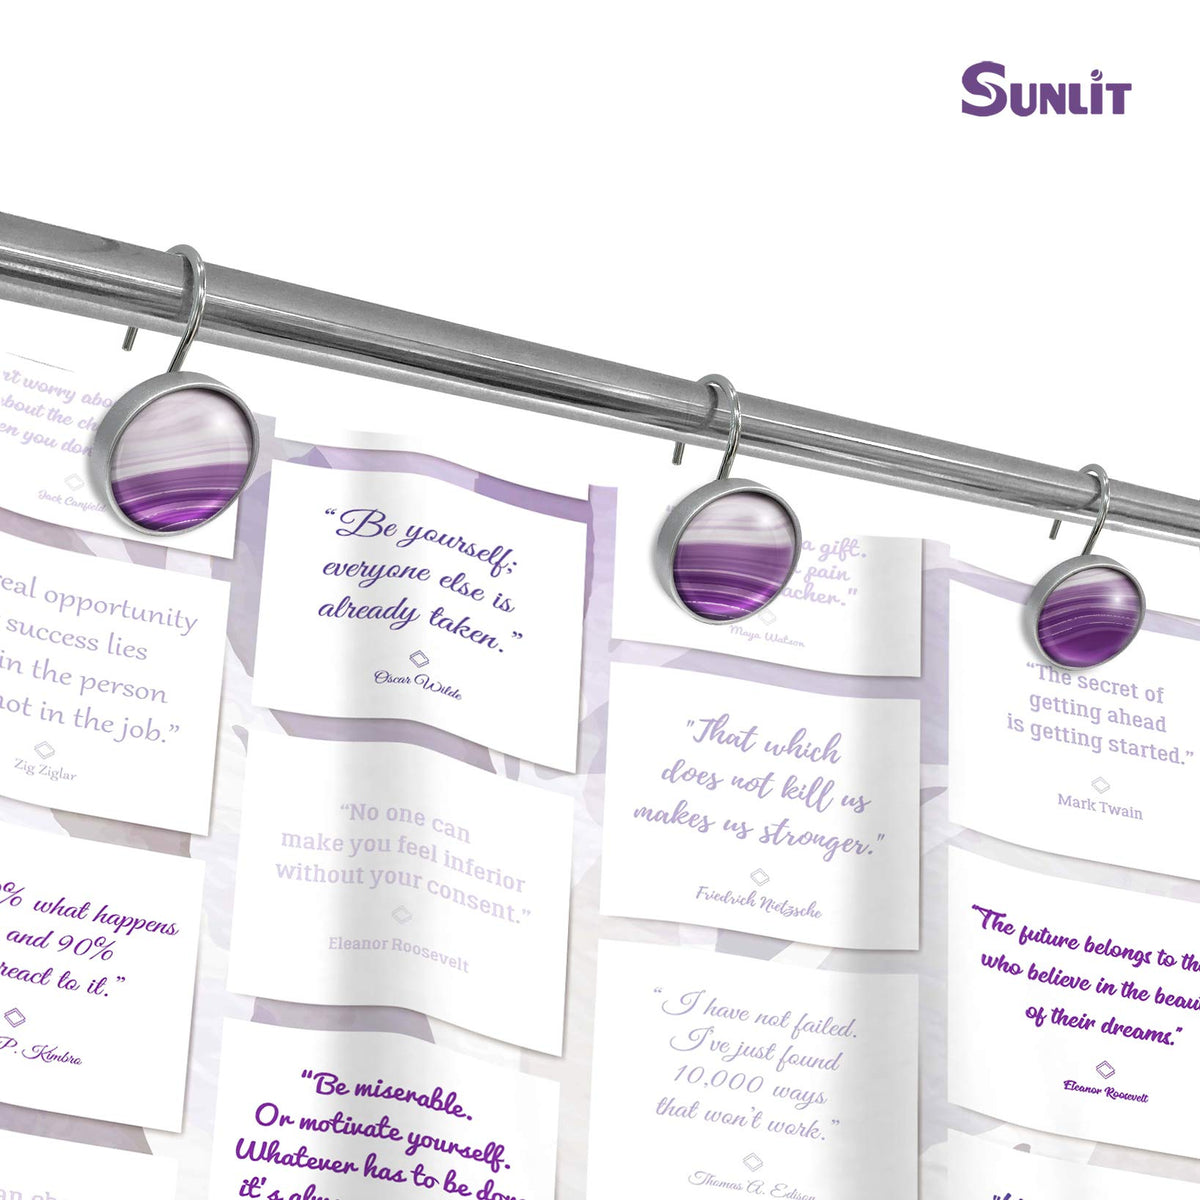 SUNLIT
worry
about the
you
Jack Canfield
real opportunity
success lies
in the person
not in the job.”
Zig Ziglar
% what happens
and 90%
react to it.”
P. Kimbro
“Be yourself;
everyone else is
already taken.”
Oscar Wilde
“No one can
make you feel inferior
without your consent.”
Eleanor Roosevelt
“Be miserable.
Or motivate yourself.
Whatever has to be done,
it's
a gift.
pain
Maya Watson
"That which
does not kill us
makes us stronger."
Friedrich Nietzsche
“I have not failed.
I've just found
10,000 ways
that won't work.”
Thomas A. Edison
“The secret of
getting ahead
is getting started.”
Mark Twain
“The future belongs to
who believe in the
of their dreams.”
Eleanor Roosevelt